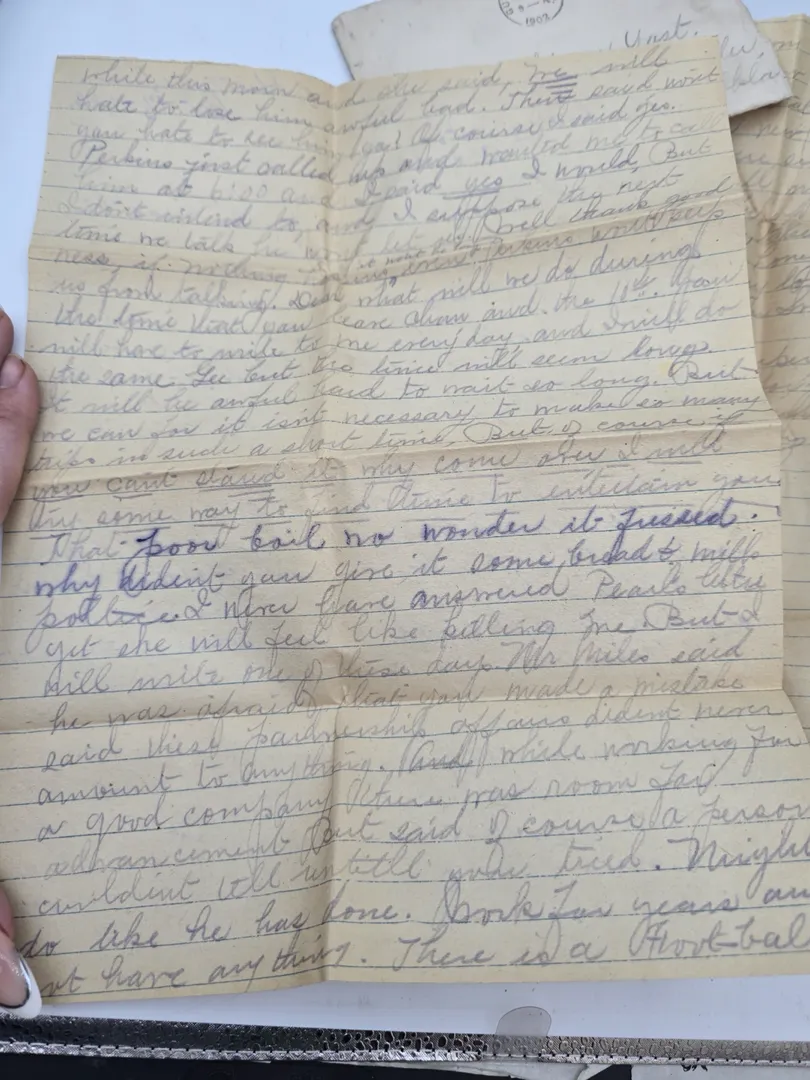 1903
Yost.
while this morn and she said, We will
hate to lose him awful bad. Then said wont
you hate to see him go? Of course I said yes.
Perkins just called up and wanted me to call
him at 6:00 and I said yes I would, But
I dont intend to, and I suppose the next
time we talk he wont let Well thank good
ness if nothing Perkins wont keep
us from talking. Dear what will we do during
the time that you leave and the 10th. You
will have to write to me every day and I will do
the same. Gee but this time will seem long.
It will be awful hard to wait so long. But
we can for it isn't necessary to make so many
trips in such a short time. But of course if
you cant stand it why come over I will
try some way to find time to entertain you.
That poor boil no wonder it fussed.
why dident you give it some bread & milk
poltice. I never have answered Pearls letter
yet she will feel like killing me. But I
will write one of these days. Mr Miles said
he was afraid that you made a mistake
said these partnership affairs dident never
amount to anything. And while working for
a good company there was room for
advancement But said of course a person
couldint tell untill you tried. Might
do like he has done. Work for years an
not have anything. There is a Foot-bal